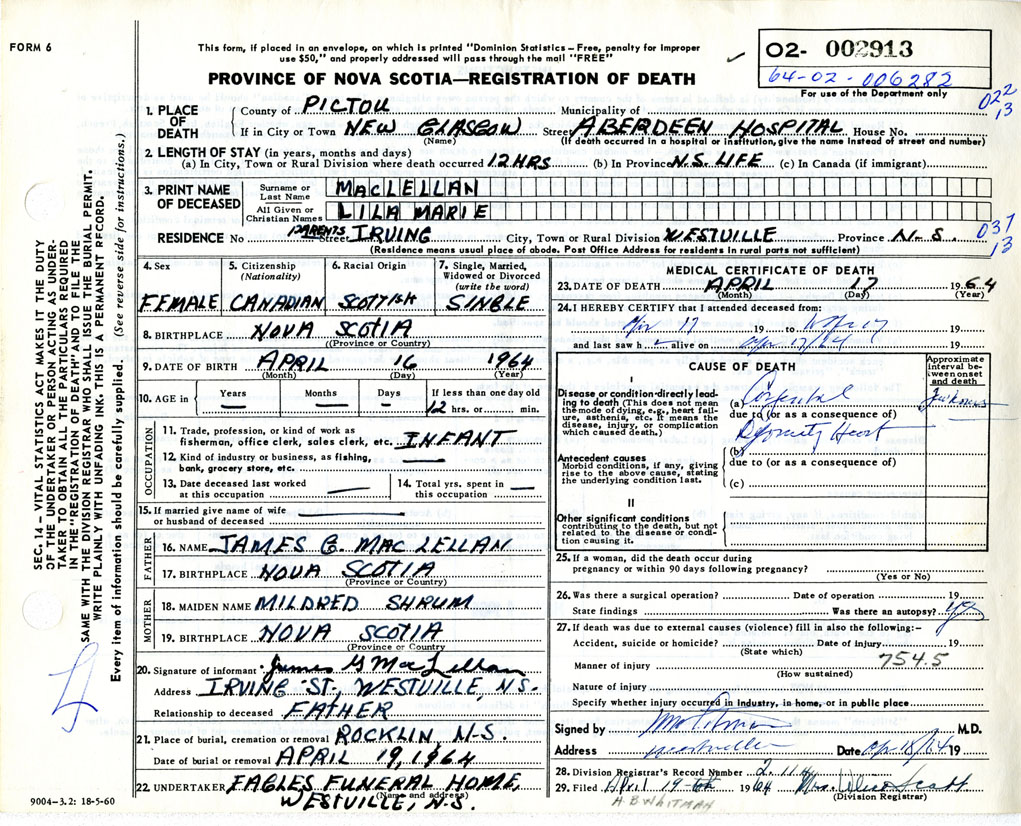 FORM 6
This form, if placed in an envelope, on which is printed "Dominion Statistics – Free, penalty for improper
use $50," and properly addressed will pass through the mail "FREE"
PROVINCE OF NOVA SCOTIA—REGISTRATION OF DEATH
O2- 002913
64-02-006282
For use of the Department only
022
13
1. PLACE OF DEATH
County of PICTOU Municipality of
If in City or Town NEW GLASGOW Street ABERDEEN HOSPITAL House No.
(Name) (If death occurred in a hospital or institution, give the name instead of street and number)
2. LENGTH OF STAY (in years, months and days)
(a) In City, Town or Rural Division where death occurred 12 HRS (b) In Province N.S. LIFE (c) In Canada (if immigrant)
3. PRINT NAME OF DECEASED
Surname or Last Name MACLELLAN
All Given or Christian Names LILA MARIE
RESIDENCE No PARENTS Street IRVING City, Town or Rural Division WESTVILLE Province N-S.
037
13
(Residence means usual place of abode. Post Office Address for residents in rural parts not sufficient)
4. Sex FEMALE
5. Citizenship (Nationality) CANADIAN
6. Racial Origin SCOTTISH
7. Single, Married, Widowed or Divorced (write the word) SINGLE
8. BIRTHPLACE NOVA SCOTIA
(Province or Country)
9. DATE OF BIRTH APRIL 16 1964
(Month) (Day) (Year)
10. AGE in Years — Months — Days — If less than one day old 12 hrs. or min.
OCCUPATION
11. Trade, profession, or kind of work as
fisherman, office clerk, sales clerk, etc. INFANT
12. Kind of industry or business, as fishing,
bank, grocery store, etc. —
13. Date deceased last worked at this occupation —
14. Total yrs. spent in this occupation —
15. If married give name of wife
or husband of deceased —
FATHER
16. NAME JAMES G. MAC LELLAN
17. BIRTHPLACE NOVA SCOTIA
(Province or Country)
MOTHER
18. MAIDEN NAME MILDRED SHRUM
19. BIRTHPLACE NOVA SCOTIA
(Province or Country)
20. Signature of informant James G MacLellan
Address IRVING ST., WESTVILLE, N.S.
Relationship to deceased FATHER
21. Place of burial, cremation or removal ROCKLIN, N-S.
Date of burial or removal APRIL 19, 1964
22. UNDERTAKER EAGLES FUNERAL HOME,
(Name and address)
WESTVILLE, N.S.
MEDICAL CERTIFICATE OF DEATH
23. DATE OF DEATH APRIL 17 1964
(Month) (Day) (Year)
24. I HEREBY CERTIFY that I attended deceased from:
Apr 17 19 to Apr 17 19
and last saw h alive on Apr 17/64 19
CAUSE OF DEATH
Approximate interval between onset and death
I
Disease or condition directly leading to death (This does not mean the mode of dying, e.g., heart failure, asthenia, etc. It means the disease, injury, or complication which caused death.)
(a)
due to (or as a consequence of)
Heart
(b)
Antecedent causes
Morbid conditions, if any, giving rise to the above cause, stating the underlying condition last.
due to (or as a consequence of)
(c)
II
Other significant conditions
contributing to the death, but not related to the disease or condition causing it.
25. If a woman, did the death occur during
pregnancy or within 90 days following pregnancy?
(Yes or No)
26. Was there a surgical operation? Date of operation 19
State findings Was there an autopsy? yes
27. If death was due to external causes (violence) fill in also the following:–
Accident, suicide or homicide? Date of injury 19
(State which)
754.5
Manner of injury
(How sustained)
Nature of injury
Specify whether injury occurred in industry, in home, or in public place
Signed by M.D.
Address Westville Date Apr 18/64 19
28. Division Registrar's Record Number
29. Filed April 19th 1964 Mrs. Scott
(Division Registrar)
H.B WHITMAN
9004–3.2: 18-5-60
SEC. 14 – VITAL STATISTICS ACT MAKES IT THE DUTY
OF THE UNDERTAKER OR PERSON ACTING AS UNDER-
TAKER TO OBTAIN ALL THE PARTICULARS REQUIRED
IN THE "REGISTRATION OF DEATH" AND TO FILE THE
SAME WITH THE DIVISION REGISTRAR WHO SHALL ISSUE THE BURIAL PERMIT.
WRITE PLAINLY WITH UNFADING INK. THIS IS A PERMANENT RECORD.
Every item of information should be carefully supplied. (See reverse side for instructions.)